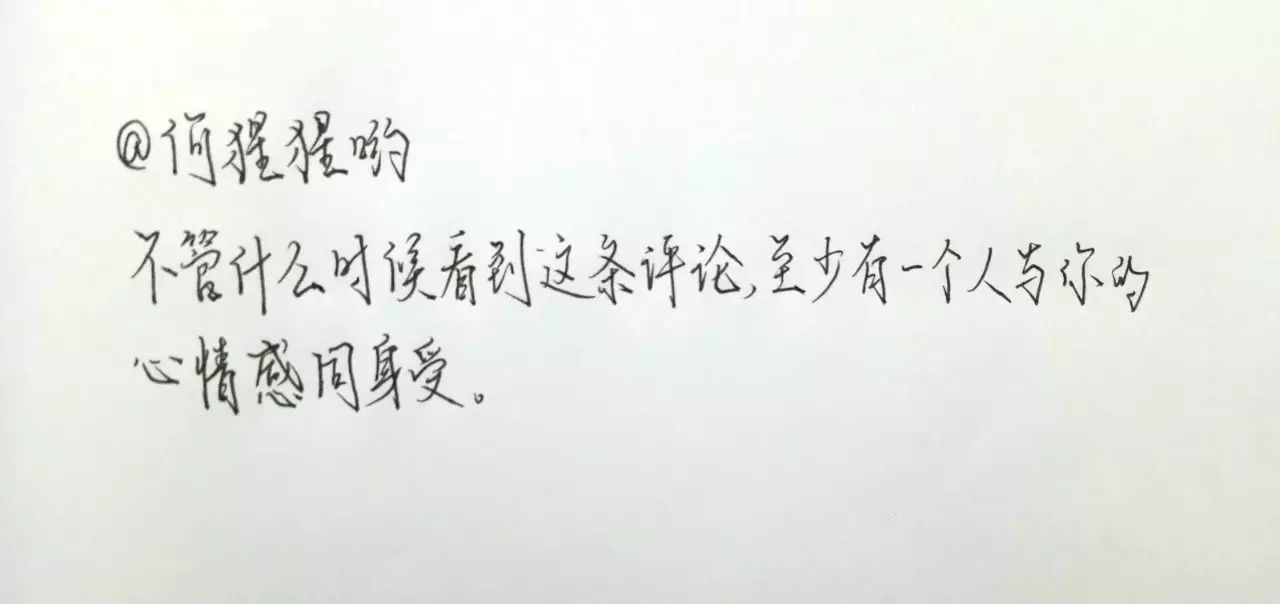 @何猩猩哟
不管什么时候看到这条评论,至少有一个人与你的
心情感同身受。